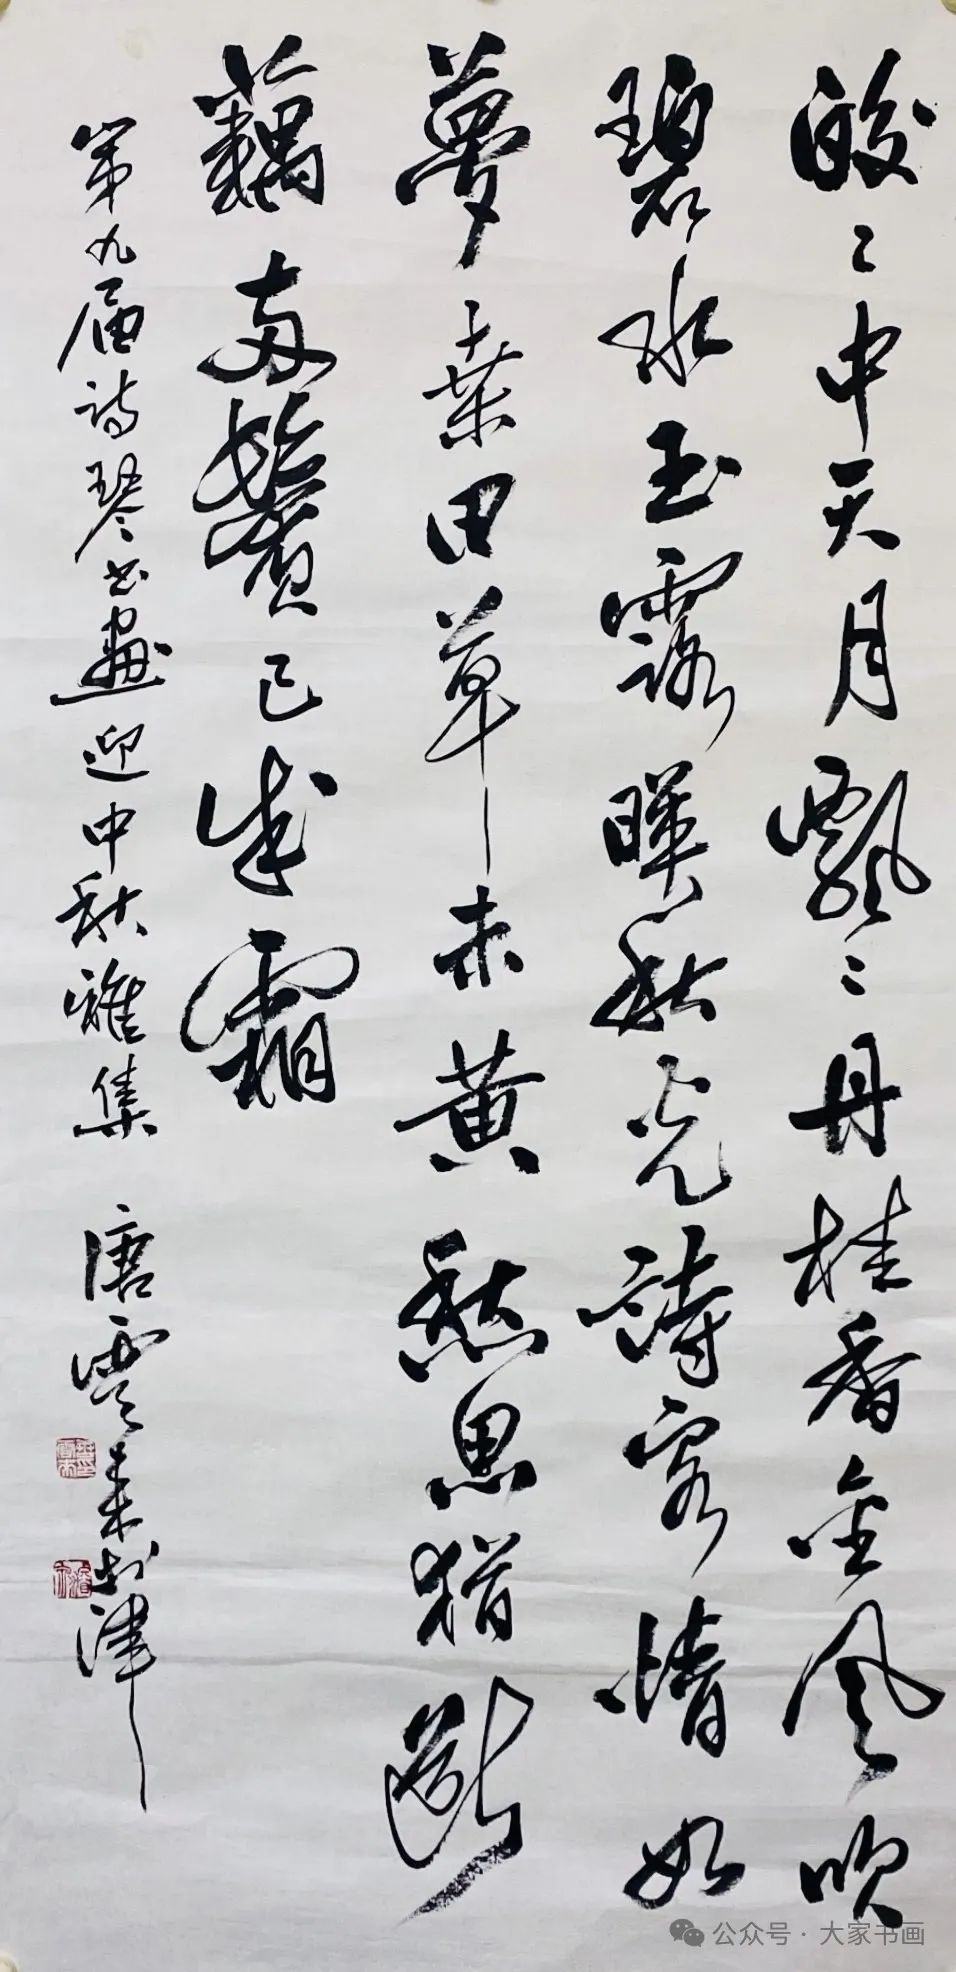 皎〻中天月飘〻丹桂香金风吹
碧水玉露晖秋光诗客情如
梦桑田草未黄愁思犹断
藕两鬓已成霜
第九届诗琴书画迎中秋雅集
唐云来于津
公众号·大家书画